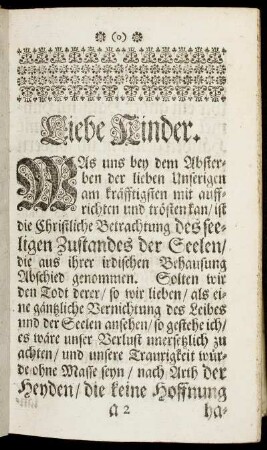 (o)
Liebe Kinder.
WAs uns bey dem Abster-
ben der lieben Unserigen
am kräfftigsten mit auff-
richten und trösten kan/ ist
die Christliche Betrachtung des see-
ligen Zustandes der Seelen/
die aus ihrer irdischen Behausung
Abschied genommen. Solten wir
den Todt derer/ so wir lieben/ als ei-
ne gäntzliche Vernichtung des Leibes
und der Seelen ansehen/ so gestehe ich/
es wäre unser Verlust unersetzlich zu
achten/ und unsere Traurigkeit wür-
de ohne Masse seyn/ nach Arth der
Heyden/ die keine Hoffnung
a 2 ha-